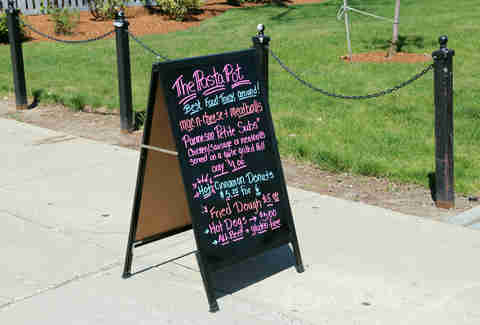 The Pasta Pot
Best Food Truck around!
mac-n-cheese + meatballs
"Parmesan Petite Subs"
Chicken/Sausage or meatballs
Served on a garlic grilled Roll
only
Hot Cinnamon Donuts
for 6
Fried Dough $5.00
Hot Dogs → $5.00
All-Beef → gluten-free